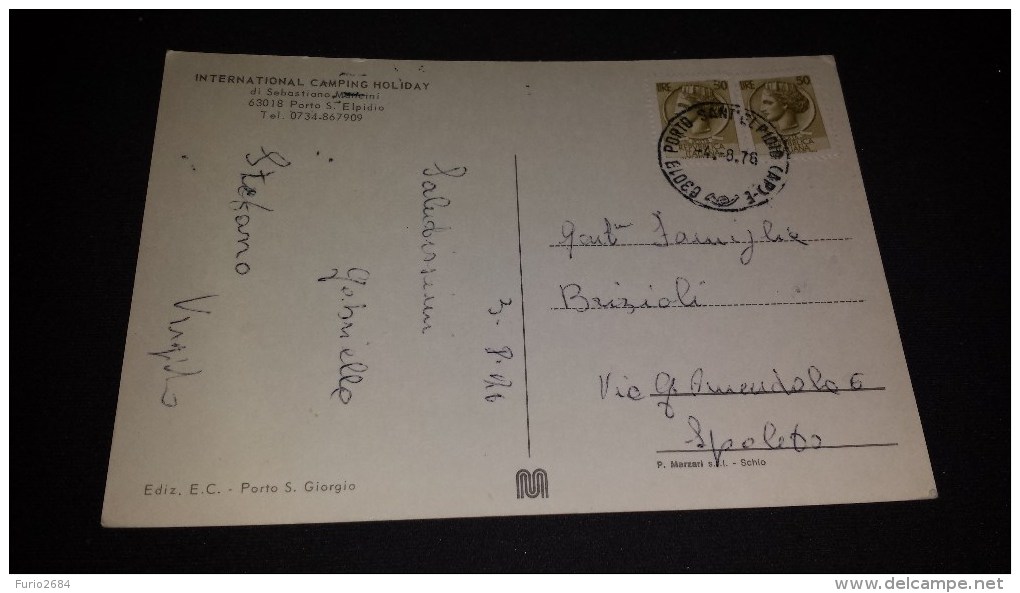 INTERNATIONAL CAMPING HOLIDAY
di Sebastiano
63018 Porto S. Elpidio
Tel. 0734-867909
LIRE 50
LIRE 50
63018 PORTO SANT'ELPIDIO (AP)-E
-4.-8.76
3. 8. 76
Salutissimi
Gabriella
Stefano
Gent. Famiglia
Brizioli
Via G. Amendola 6
Spoleto
P. Marzari s.r.l. - Schio
Ediz. E.C. - Porto S. Giorgio
Furio2684
www.delcampe.net